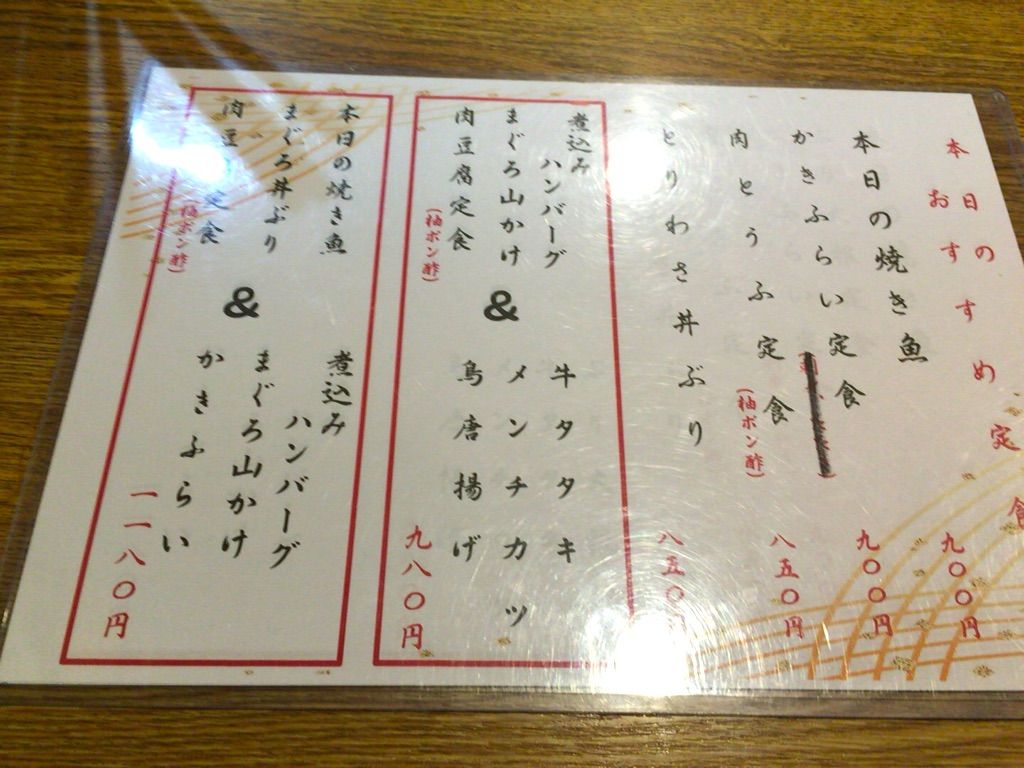 本日の
おすすめ
定食
本日の焼き魚 九〇〇円
かきふらい定食 九〇〇円
肉とうふ定食 八五〇円
(柚ポン酢)
とりわさ丼ぶり 八五〇円
煮込み
ハンバーグ
まぐろ山かけ
肉豆腐定食
(柚ポン酢)
&
牛タタキ
メンチカツ
鳥唐揚げ
九八〇円
本日の焼き魚
まぐろ丼ぶり
肉豆 定食
(柚ポン酢)
&
煮込み
ハンバーグ
まぐろ山かけ
かきふらい
一一八〇円